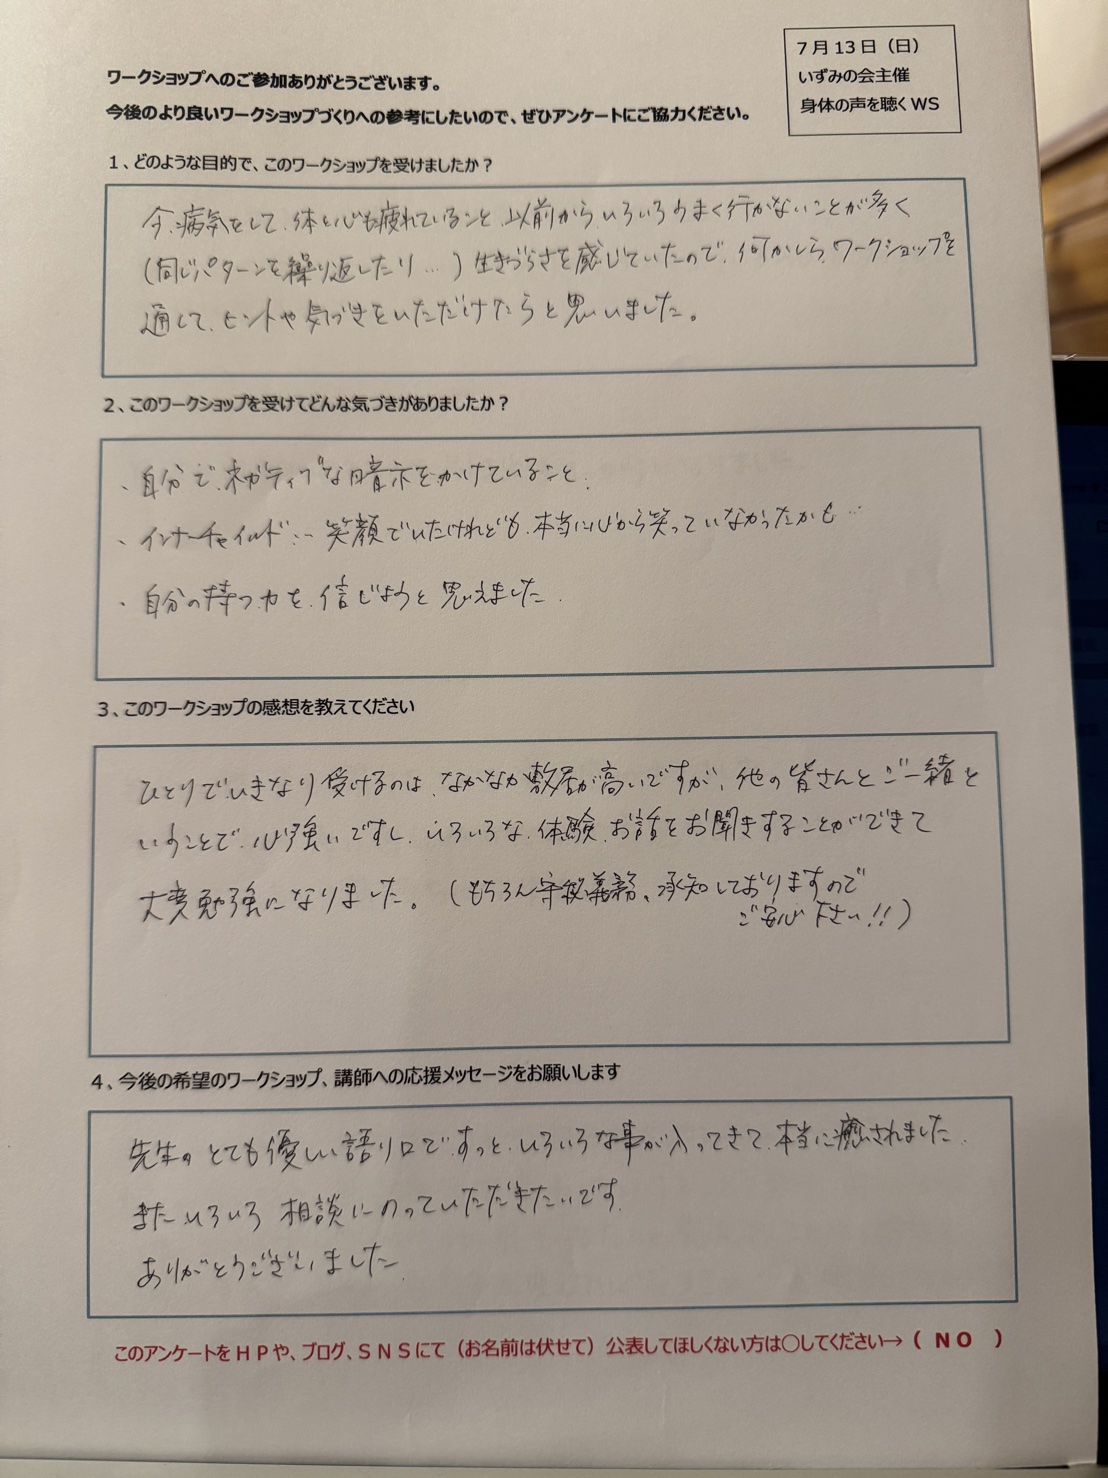 7月13日（日）
いずみの会主催
身体の声を聴くWS
ワークショップへのご参加ありがとうございます。
今後のより良いワークショップづくりへの参考にしたいので、ぜひアンケートにご協力ください。
１、どのような目的で、このワークショップを受けましたか？
今、病気をして、体も心も疲れていること、以前から、いろいろうまく行かないことが多く
（同じパターンを繰り返したり…）生きづらさを感じていたので、何かしら、ワークショップを
通して、ヒントや気づきをいただけたらと思いました。
２、このワークショップを受けてどんな気づきがありましたか？
・自分で、ネガティブな暗示をかけていること。
・インナーチャイルド…笑顔でいたけれども、本当に心から笑っていなかったかも…
・自分の持つ力を、信じようと思えました。
３、このワークショップの感想を教えてください
ひとりでいきなり受けるのは、なかなか敷居が高いですが、他の皆さんとご一緒と
いうことで、心強いですし、いろいろな、体験、お話をお聞きすることができて
大変勉強になりました。（もちろん守秘義務、承知しておりますので
ご安心下さい!!）
４、今後の希望のワークショップ、講師への応援メッセージをお願いします
先生の とても優しい語り口で、すっと、いろいろな事が入ってきて、本当に癒されました。
また、いろいろ 相談にのっていただきたいです。
ありがとうございました。
このアンケートをＨＰや、ブログ、ＳＮＳにて（お名前は伏せて）公表してほしくない方は〇してください→（ ＮＯ ）